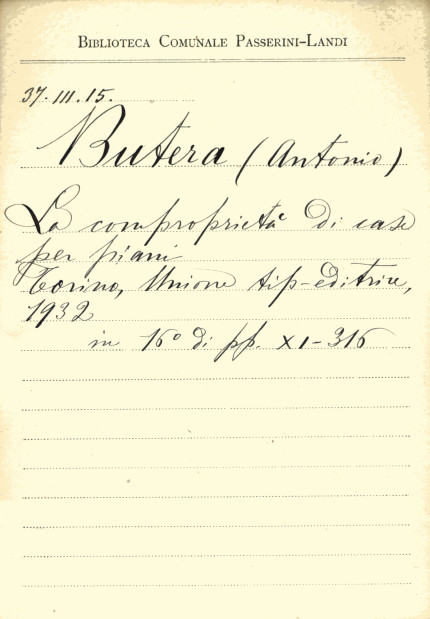 BIBLIOTECA COMUNALE PASSERINI-LANDI
37.III.15.
Butera (Antonio)
La comproprietà di case
per piani
Torino, Unione tip-editrice,
1932
in 16° di pp. XI-316